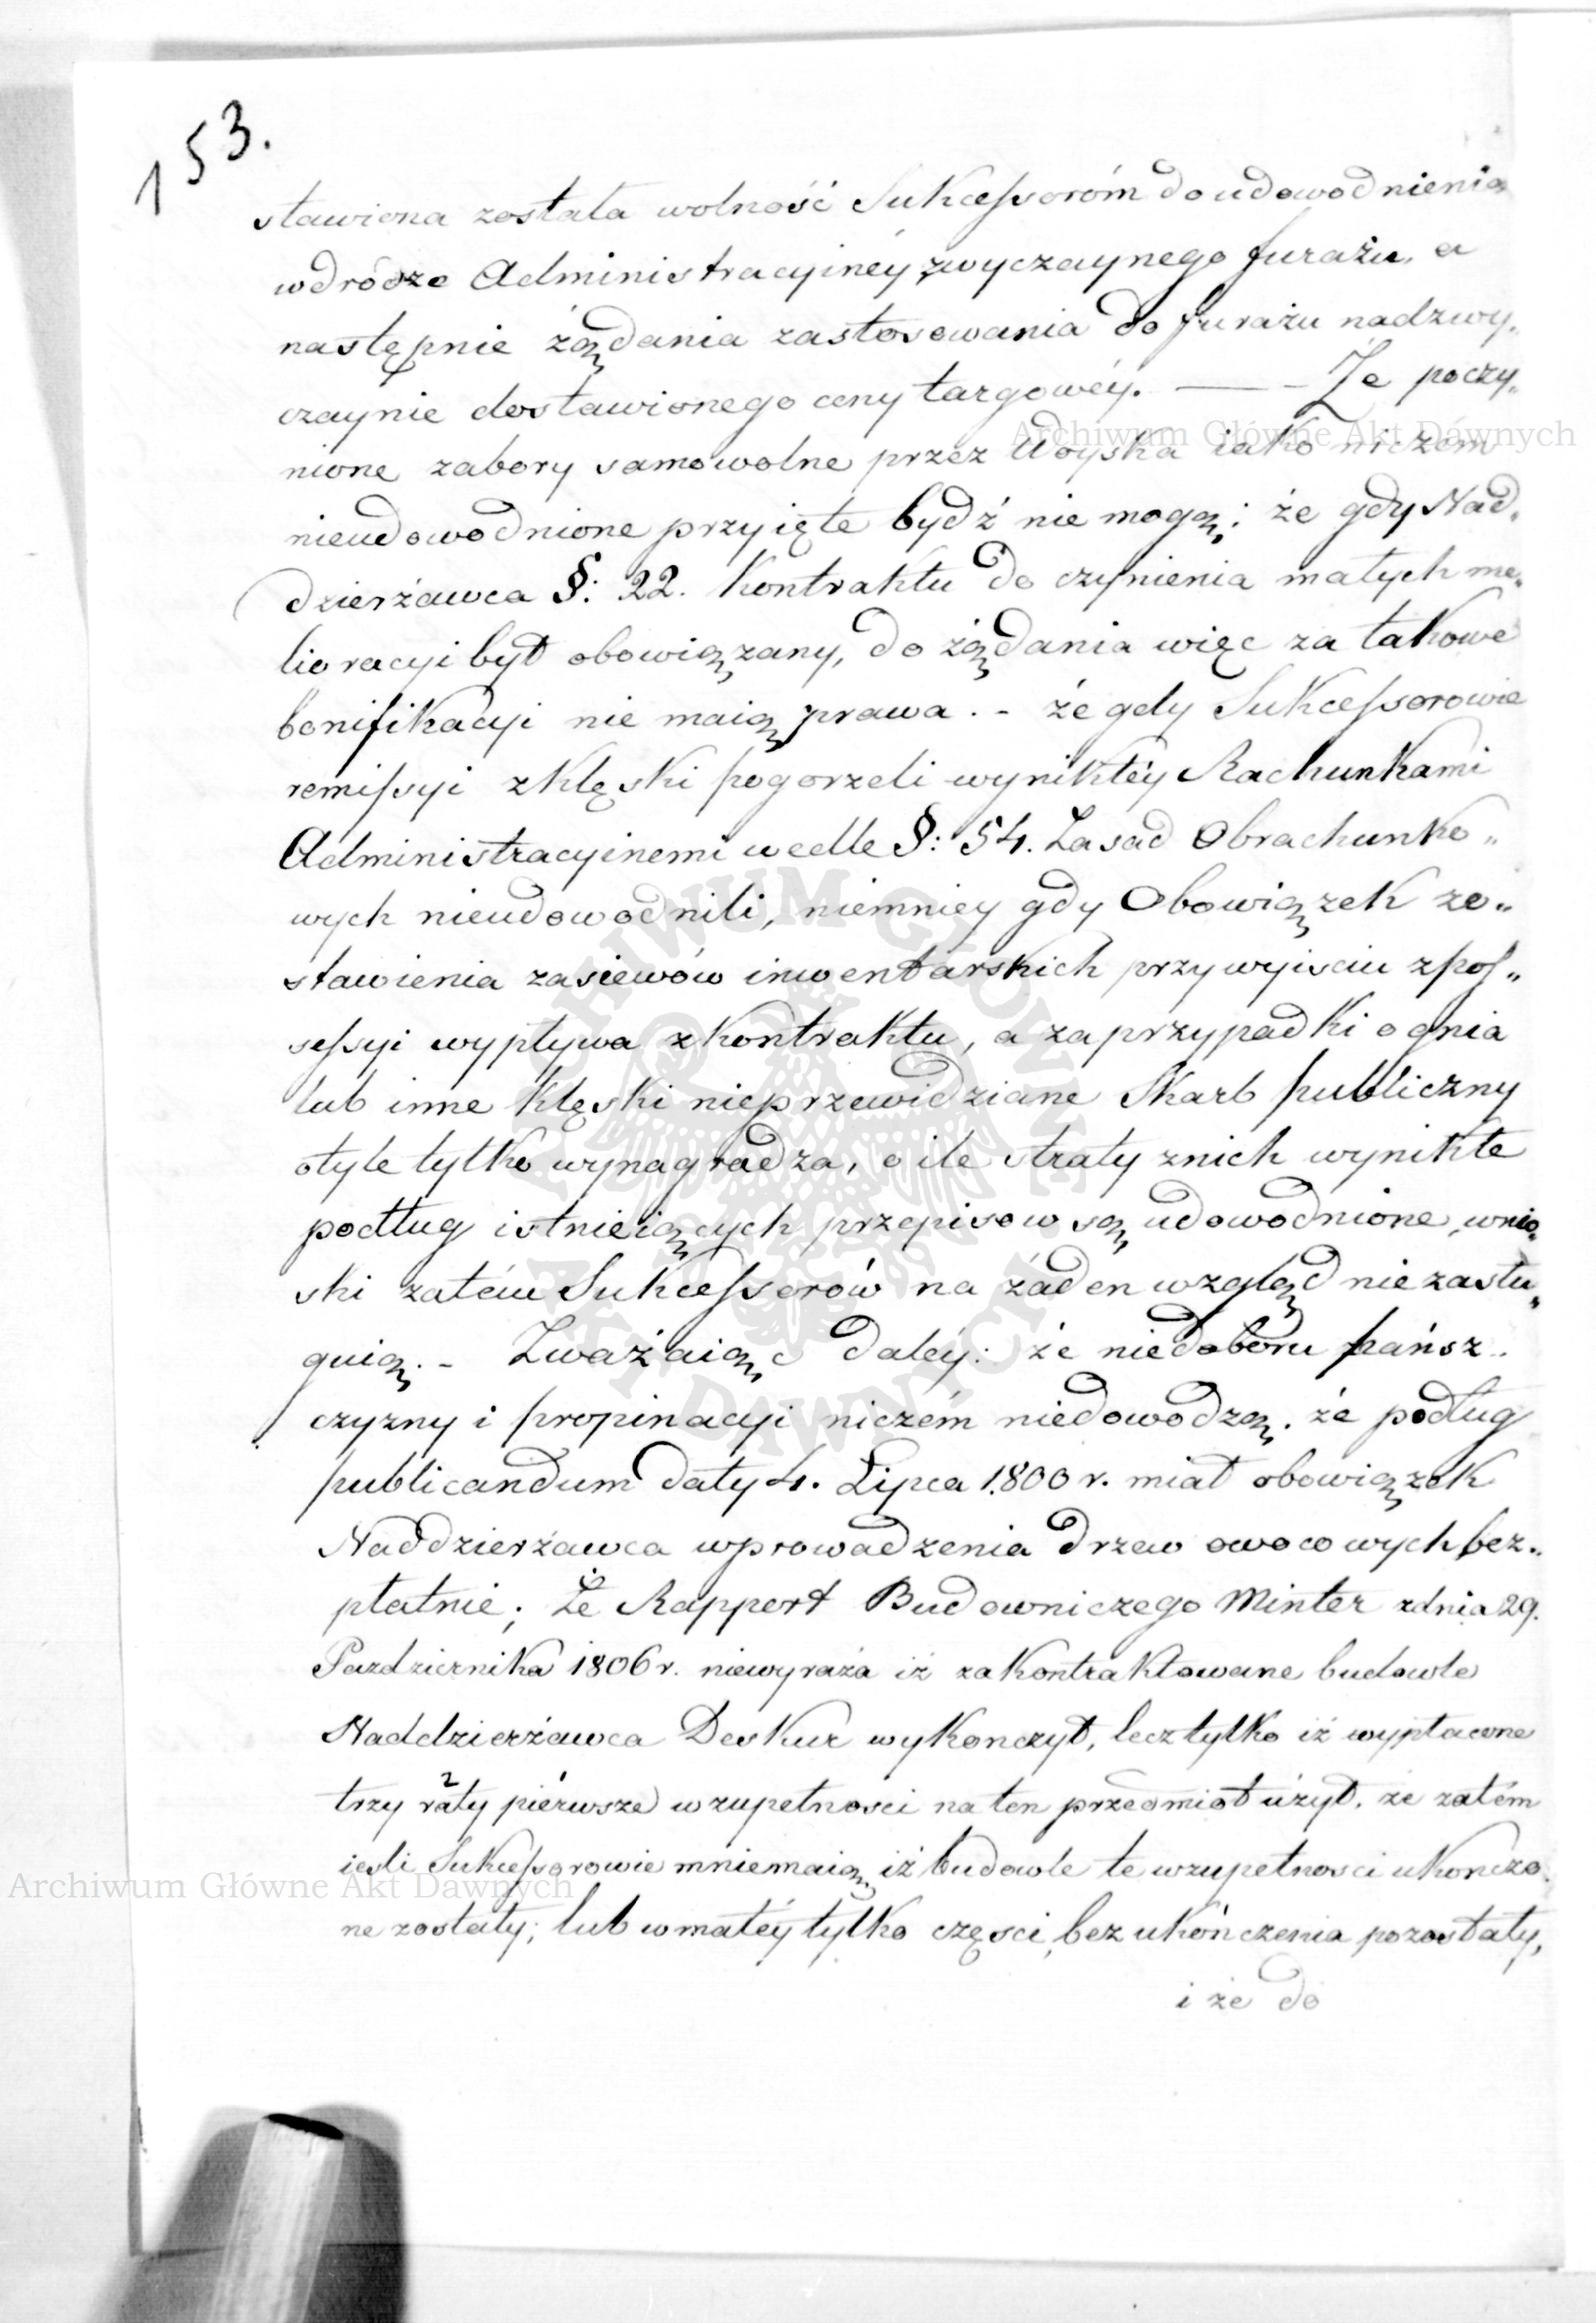 153.
stawiona została wolność Sukcessoróm do udowodnienia
wdrodze Administracyinéy zwyczaynego furażu, a
następnie żądania zastosowania do furażu nadzwy„
czaynie dostawionego ceny targowéy. — – Że poczy„
nione zabory samowolne przez Woyska iako niczém
nieudowodnione przyięte bydź nie mogą; że gdy Nad„
dzierżawca §: 22. Kontraktu do czynienia małych me„
lioracyi był obowiązany, do żądania więc za takowe
bonifikacyi nie maią prawa. – że gdy Sukcessorowie
remissyi zklęski pogorzeli wynikłéy Rachunkami
Administracyinemi wedle §: 54. Zasad Obrachunko„
wych nieudowodnili, niemniey gdy Obowiązek zo„
stawienia zasiewów inwentarskich przy wyisciu zpos„
sessyi wypływa zkontraktu, a za przypadki ognia
lub inne klęski nieprzewidziane Skarb publiczny
otyle tylko wynagradza, o ile straty znich wynikłe
podług istnieiących przepisow są udowodnione, wnio„
ski zatém Sukcessorów na żaden wzgląd niezasłu„
guią. – Zważaiąc daléy: że niedoboru pańsz„
czyzny i propinacyi niczém niedowodzą. że podług
publicandum daty 4. Lipca 1800 r. miał obowiązek
Naddzierżawca wprowadzenia drzew owocowych bez„
płatnie; Że Rapport Budowniczego Minter zdnia 29.
Pazdziernika 1806 r. niewyraża iż zakontraktowane budowle
Naddzierżawca Deskur wykonczył, lecz tylko iż wypłacone
trzy raty piérwsze wzupełnosci na ten przedmiot użył. że zatém
iesli Sukcessorowie mniemaią iż budowle te wzupełnosci ukonczo„
ne zostały; lub w małéy tylko częsci bez ukończenia pozostały,
i że do
Archiwum Główne Akt Dawnych
Archiwum Główne Akt Dawnych
ARCHIWUM GŁÓWNE AKT DAWNYCH